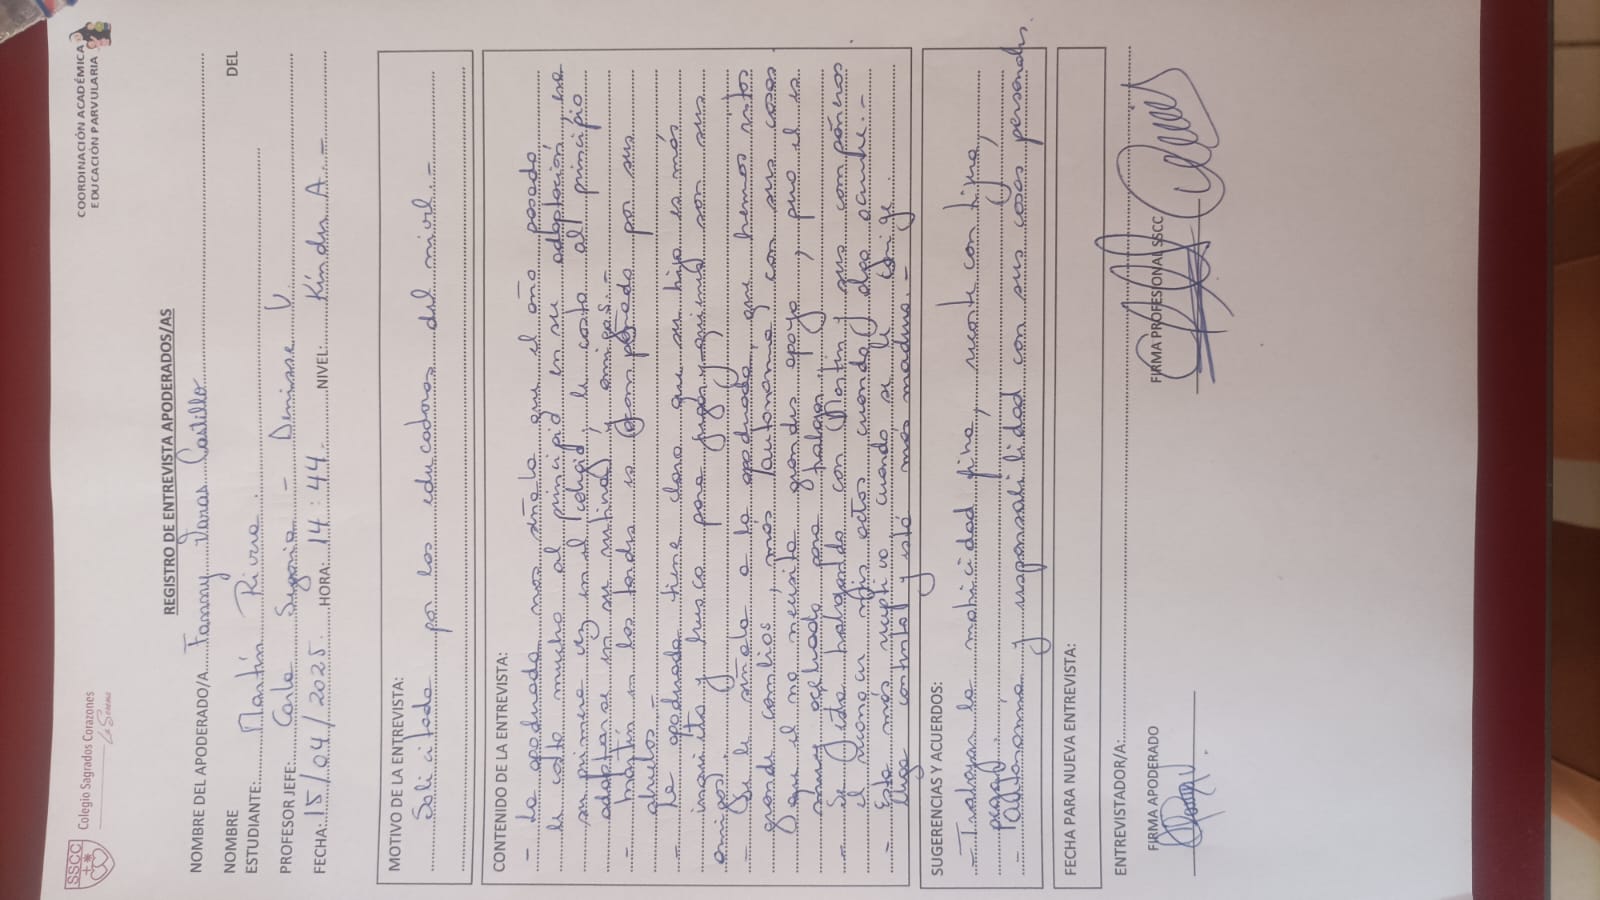 SSCC
Colegio Sagrados Corazones
La Serena
COORDINACIÓN ACADÉMICA
EDUCACIÓN PARVULARIA
REGISTRO DE ENTREVISTA APODERADOS/AS
NOMBRE DEL APODERADO/A. Fanny Varas Castillo
NOMBRE DEL
ESTUDIANTE: Martín Rivera.
PROFESOR JEFE: Carla Segovia - Denisse V.
FECHA: 15/04/2025. HORA: 14:44. NIVEL: Kínder A.-
MOTIVO DE LA ENTREVISTA:
Solicitada por las educadoras del nivel.-
CONTENIDO DE LA ENTREVISTA:
- La apoderada nos señala que el año pasado
le costó mucho al principio en su adaptación, era
su primera vez en el colegio, le costó al principio
adaptarse en su rutina, y amigas.-
- Martín en las tardes es acompañado por sus
abuelos.-
- La apoderada tiene claro que su hijo es más
inquieto y busca para jugar y animis son sus
amigos).
- Se le señala a la apoderada, que hemos vistos
grande cambios, más autónomo con sus cosas
que el no necesita grandes apoyo, pero el es
muy ocupado para trabajar.
- Se está trabajando con Martín y sus compañeros
el reconocer mejor actos cuando algo ocurre.-
- Esta más receptivo cuando se le corrige
llega contento y está más maduro.-
SUGERENCIAS Y ACUERDOS:
- Trabajar la motricidad fina, recorte con tijera,
pegar,
- Autonomía y responsabilidad con sus cosas personales.
FECHA PARA NUEVA ENTREVISTA:
ENTREVISTADOR/A:
FIRMA APODERADO
FIRMA PROFESIONAL SSCC